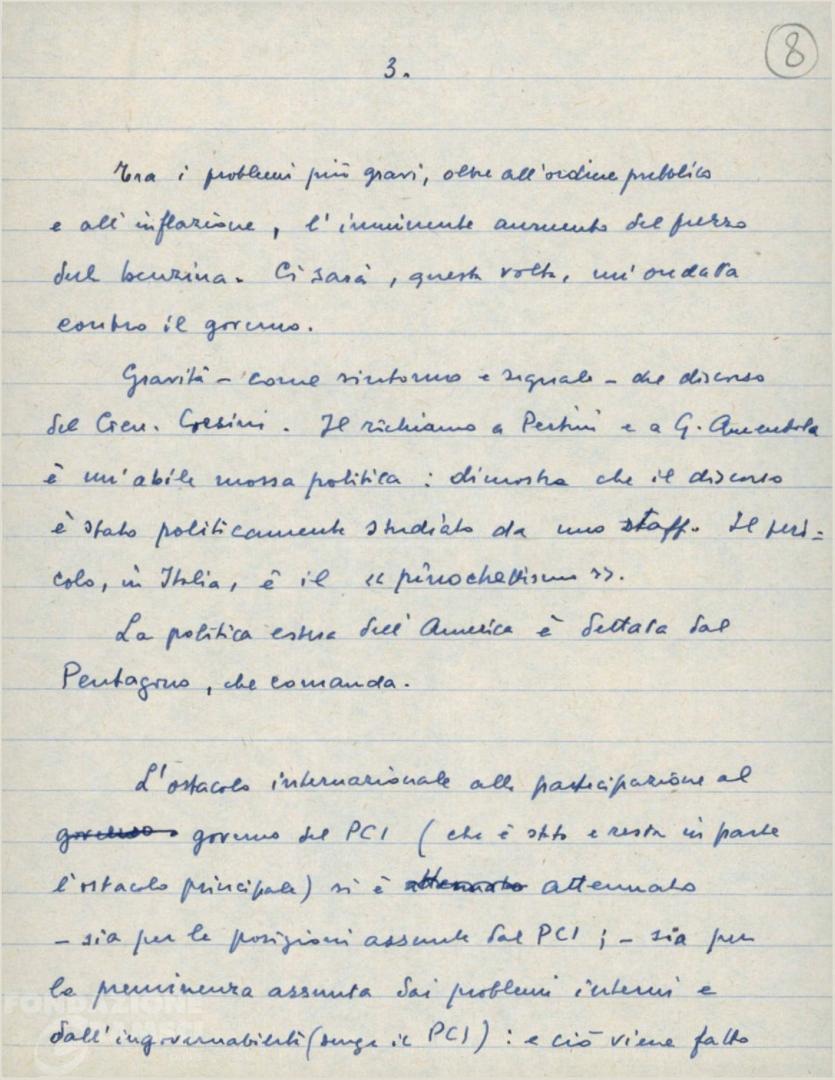 8
3.
Tra i problemi più gravi, oltre all'ordine pubblico
e all'inflazione, l'imminente aumento del prezzo
della benzina. Ci sarà, questa volta, un'ondata
contro il governo.
Gravità – come sintomo e segnale – del discorso
del Gen. Corsini. Il richiamo a Pertini e a G. Amendola
è un'abile mossa politica: dimostra che il discorso
è stato politicamente studiato da uno staff. Il peri=
colo, in Italia, è il « pinochettismo ».
La politica estera dell'America è dettata dal
Pentagono, che comanda.
L'ostacolo internazionale alla partecipazione al
governo governo del PCI (che è stato e resta in parte
l'ostacolo principale) si è attenuato attenuato
– sia per le posizioni assunte dal PCI; – sia per
la preminenza assunta dai problemi interni e
dall'ingovernabilità (senza il PCI): e ciò viene fatto
FONDAZIONE